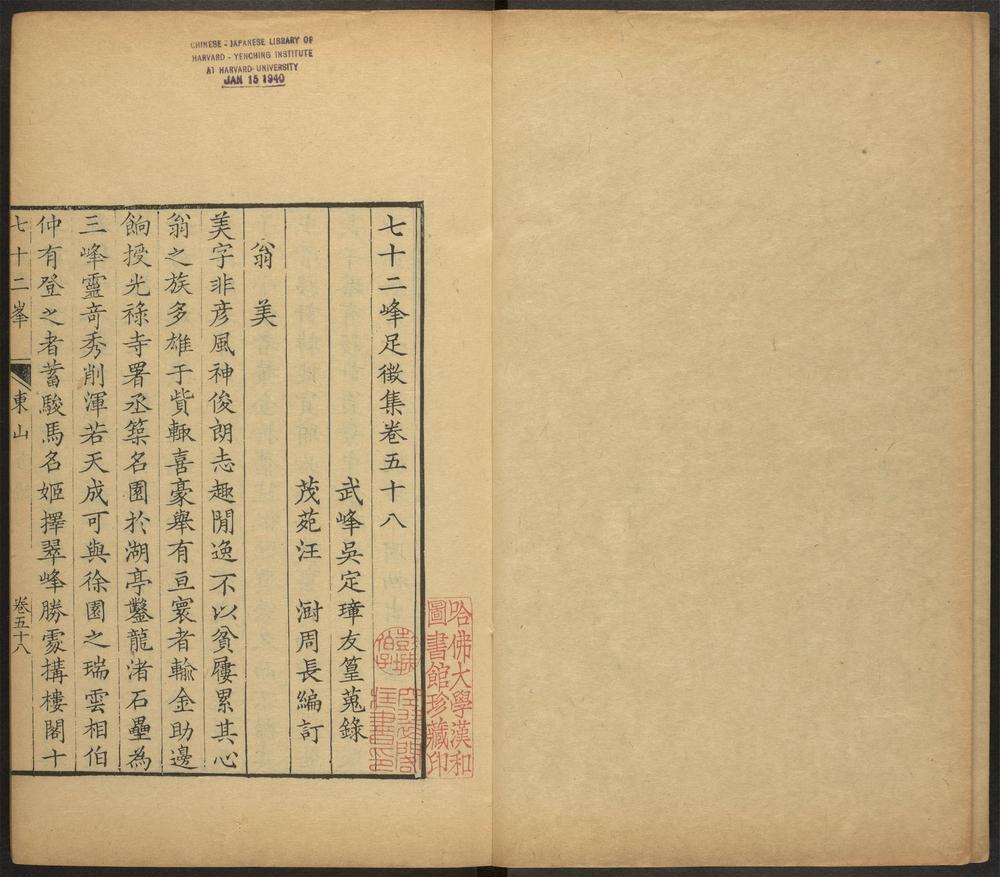 CHINESE - JAPANESE LIBRARY OF
HARVARD - YENCHING INSTITUTE
AT HARVARD UNIVERSITY
JAN 15 1940
七十二峰足徵集卷五十八
武峰吳定璋友篁蒐錄
茂苑汪 澍周長編訂
翁 美
美字非彥風神俊朗志趣閒逸不以貧屢累其心
翁之族多雄于貲輙喜豪舉有亘寰者輸金助邊
餉授光祿寺署丞築名園於湖亭鑿龍渚石壘為
三峰靈奇秀削渾若天成可與徐園之瑞雲相伯
仲有登之者蓄駿馬名姬擇翠峰勝䖏搆樓閣十
七十二峯 東山 卷五十八
哈佛大學漢和
圖書館珍藏印